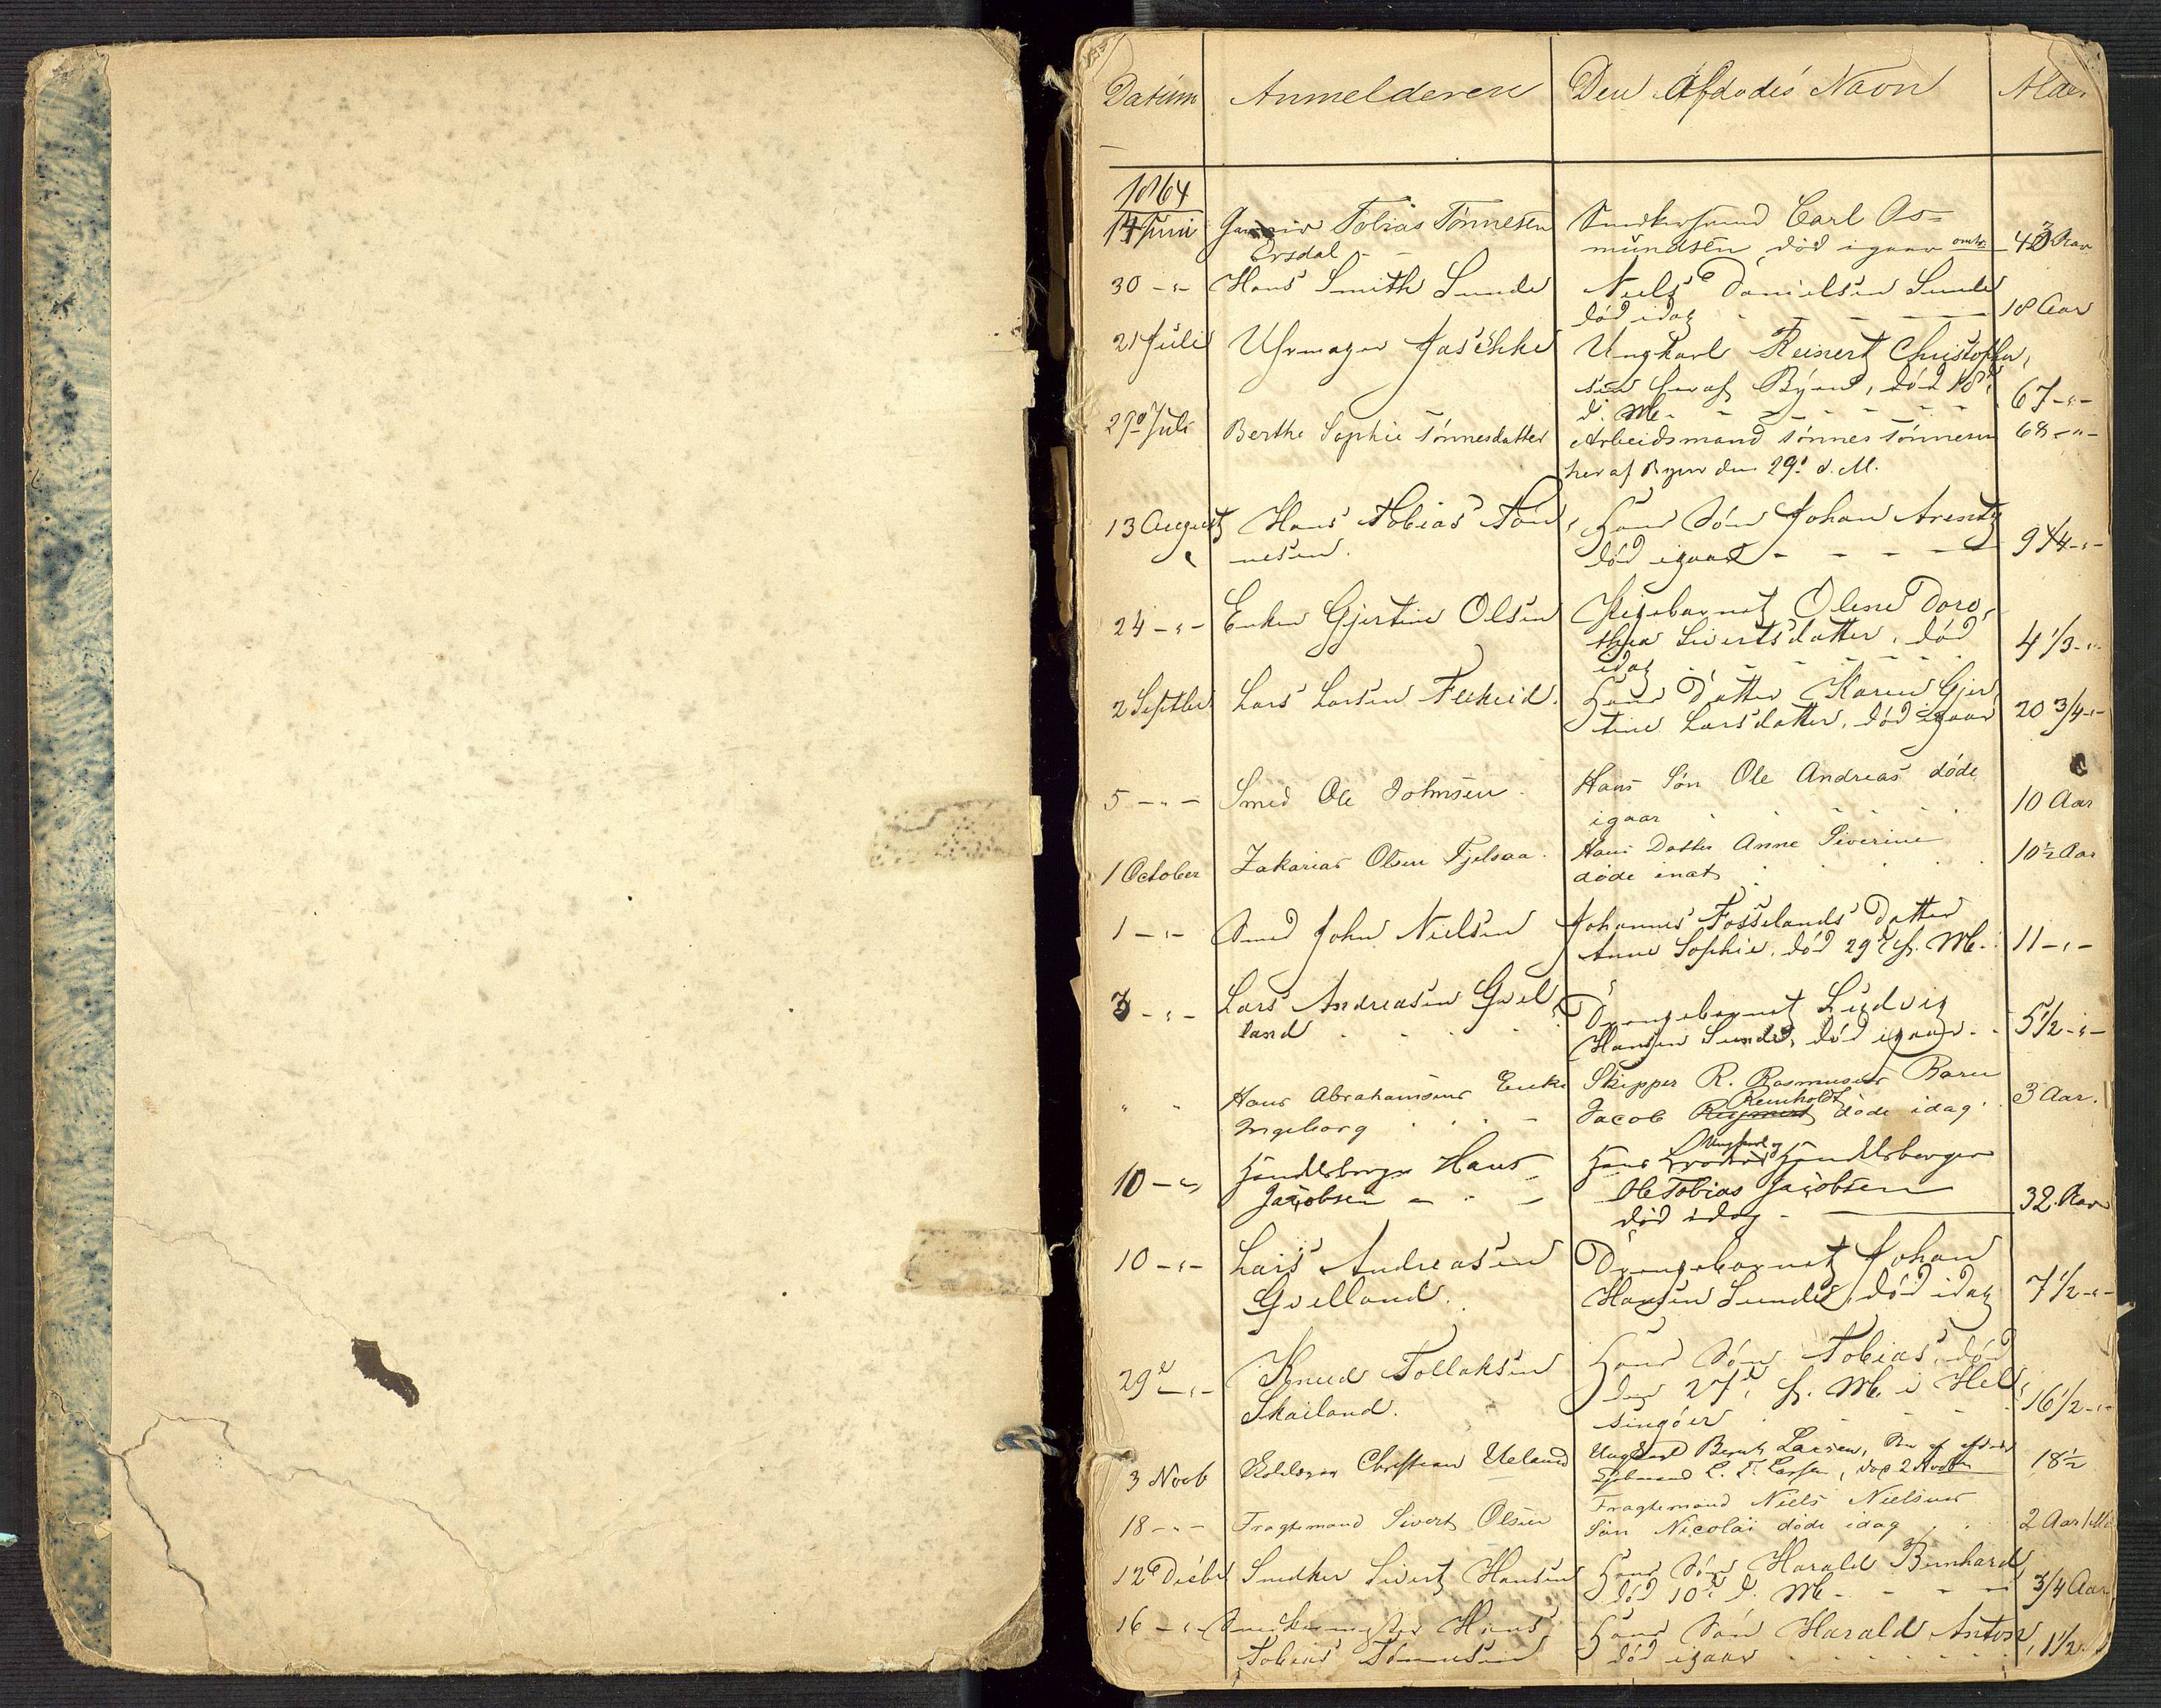 Datum Anmelderen Den Afdødes Navn Alder
1864
14 Juni Tobias Tønnesen Snedkersvend Carl As=
Ersdal - mundsen, død igaar omtr. 43 Aar
30 -"- Hans Smith Sunde Niels Danielsen Sunde
død idag - - - 18 Aar
21 Juli Uhrmager Jaschke Ungkarl Reinert Christoffer,
sen her af Byen, død 18d
d. M. - - - - - 67 -"-
29d Juli Berthe Sophie Tønnesdatter Arbeidsmand Tønnes Tønnesen 68 -"-
her af Byen den 29d d. M.
13 August Hans Tobias Tøn, Hans Søn Johan Arentz
nesen. død igaar - - - - 9 1/4 -"-
24 -"- Enken Gjertine Olsen Pigebarnet Olene Doro,
thea Sivertsdatter, død
idag - - - - 4 1/3 -"-
2 Septbr. Lars Larsen Fekeid. Hans Datter Karen Gjer,
tine Larsdatter, død igaar 20 3/4 -"-
5 -"- Smed Ole Johnsen. Hans Søn Ole Andreas døde
igaar 10 Aar
1 October Zakarias Olsen Fjelsaa. Hans Datter Anne Siverine
døde inat 10 1/2 Aar
1 -"- Smed John Nielsen Johannes Fosselands Datter
Anne Sophie, død 29d f. M. 11 -"-
3 -"- Lars Andreasen Gyel, Drengebarnet Ludvig
land Hansen Sunde, død igaar - 5 1/2 -"-
" " Hans Abrahamsens Enke Skipper R. Rasmusens Barn
Ingeborg Jacob Reinholdt døde idag 3 Aar.
10 -"- Handelsborger Hans Hans Broder Ungkarl og Handelsborger
Jacobsen - - - Ole Tobias Jacobsen
død idag - 32 Aar
10 -"- Lars Andreasen Drengebarnet Johan
Gyelland. Hansen Sunde, død idag 7 1/2 -"-
29d -"- Knud Tollaksen Hans Søn Tobias, død
Skailand. den 27d f. M. i Hel,
singøer 16 1/2 -"-
3 Novb Christian Ueland Ungkarl Bernt Larsen, Søn af afdøde
L. T. Larsen, død 2 Novbr 18 1/2
18 -"- Fragtemand Sivert Olsen Fragtemand Niels Nielsens
Søn Nicolai døde idag 2 Aar 1 Md
12d Decbr Snedker Sivert Hansen Hans Søn Harald Bernhard
død 10d d. M. - - - 3/4 Aar
16 -"- Snedkermester Hans Hans Søn Harald Anton,
Tobias Tønnesen død igaar 1 1/2